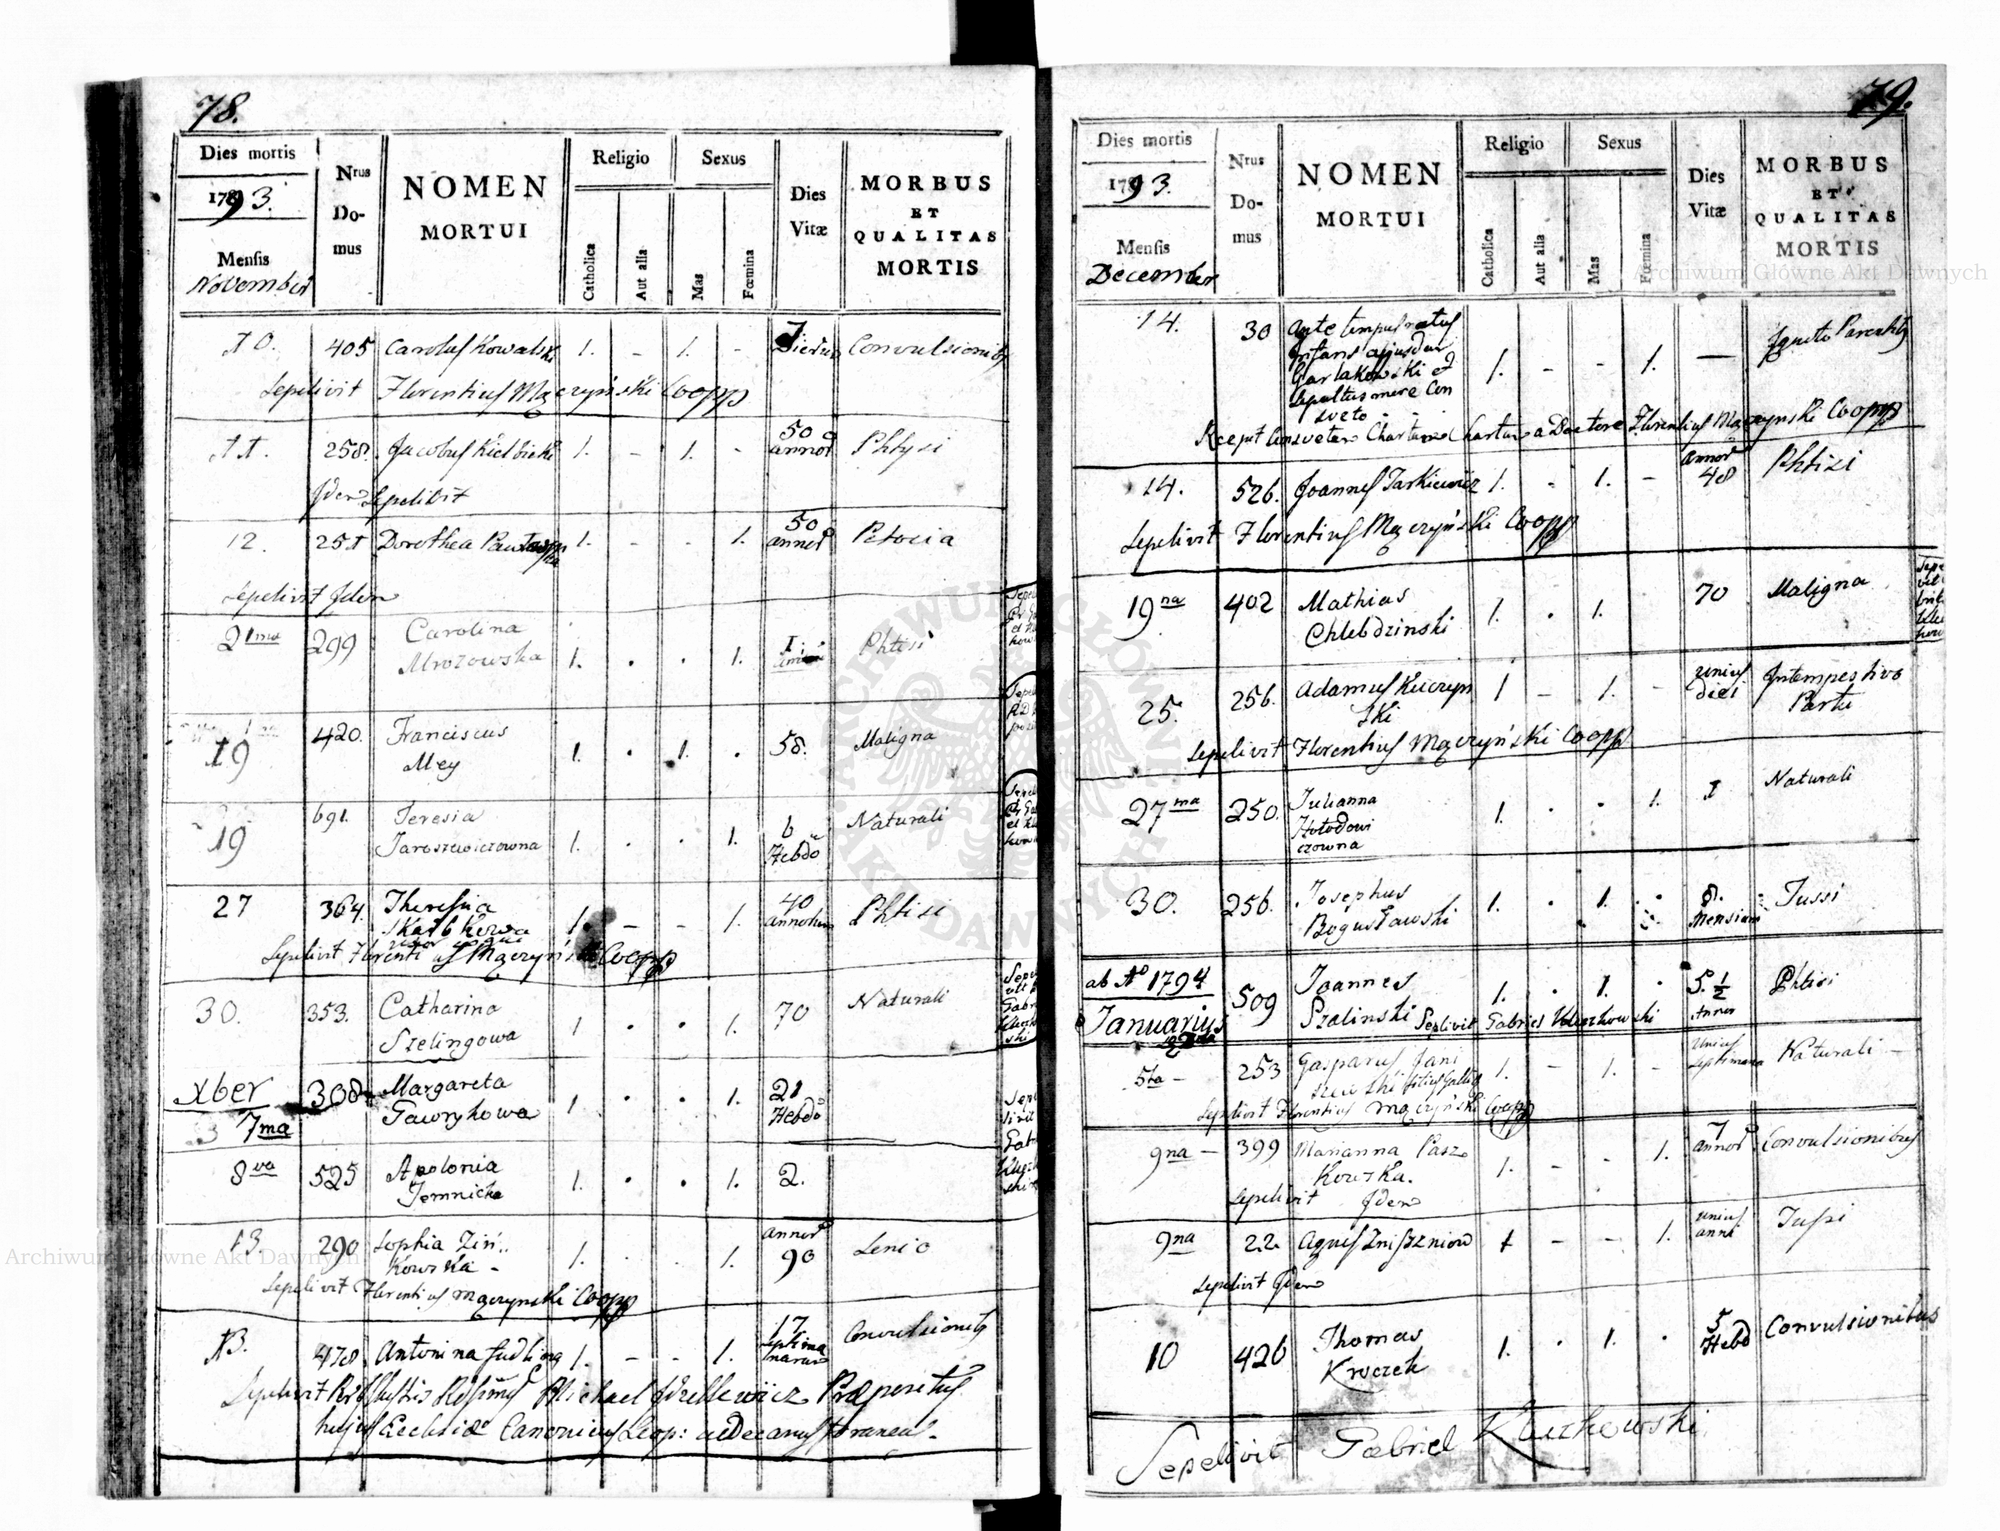 78.
Dies mortis
1793.
Mensis
November
Nrus Domus
NOMEN MORTUI
Religio
Catholica
Aut alia
Sexus
Mas
Fœmina
Dies Vitæ
MORBUS ET QUALITAS MORTIS
10. 405 Carolus Kowalski 1. - 1. - 7 Dierum Convulsionibus
Sepelivit Florentius Mączyński Coopp
11. 258. Jacobus Kielbicki 1. - 1. - 50 annor Phtysi
Idem Sepelivit
12. 251 Dorothea 1. - - 1. 50 annor
Sepelivit Idem
21ma 299 Carolina Mrozowska 1. . . 1. 1 Phtisi
19 420. Franciscus Mey 1. . 1. . 58. Maligna
19 691. Teresia Jaroszewiczowna 1. . . 1. 6 Hebdo Naturali
27 364. Theresia Skarbkowa 1. - - 1. 40 annorum Phtisi
Sepelivit Florentius Mączyński Coopp
30. 353. Catharina Szelingowa 1 . . 1. 70 Naturali
Xber 7ma 308 Margareta Gawrykowa 1 . . 1. 21 Hebdo
8va 525 Apolonia Jemnicka 1. . . 1. 2.
13 290 Sophia Zińkowska - 1. . 1. annor 90 Senio
Sepelivit Florentius Mączynski Coopp
13. 478. Antonina 1. - - 1. 17 septimanarum Convulsionibus
Sepelivit Michael Præpositus
hujus Ecclesiæ Canonicus Leop:
79.
Dies mortis
1793.
Mensis
December
Nrus Domus
NOMEN MORTUI
Religio
Catholica
Aut alia
Sexus
Mas
Fœmina
Dies Vitæ
MORBUS ET QUALITAS MORTIS
14. 30 Ante tempus natus
Infans ejusdem
Garlakowski et
Sepultus more Con
sveto 1. - - 1. —
a Doctore Florentius Mączynski Coopp
14. 526. Joannes Jarkiewicz 1. - 1. - annor 48 Phtisi
Sepelivit Florentius Mączyński Coopp
19na 402 Mathias Chlebdzinski 1. . 1. 70 Maligna
25. 256. Adamus Kuczynski 1 - 1. - Unius diei Intempestivo Partu
Sepelivit Florentius Mączyński Coopp
27ma 250. Julianna Hołodowiczowna 1. . . 1. 1 Naturali
30. 256. Josephus Bogusławski 1. . 1. . 8. Mensium Tussi
ab Ao 1794
Januarius
509 Joannes Szalinski 1. . 1. . 5. 1/2 Annor Phtisi
Sepelivit Gabriel Kluczkowski
5ta - 253 Gasparus Janiszewski 1. - 1. - Unius septimana Naturali -
Sepelivit Florentius Mączyński Coopp
9na - 399 Marianna Paszkowska. 1. - - 1. 7 annor Convulsionibus
Sepelivit Idem
9na 22 Agnes 1 - - 1. unius anni Tussi
Sepelivit Idem
10 426 Thomas Kroczek 1. . 1. . 5 Hebd Convulsionibus
Sepelivit Gabriel Kluczkowski
Archiwum Główne Akt Dawnych
Archiwum Główne Akt Dawnych
ARCHIWUM GŁÓWNE AKT DAWNYCH